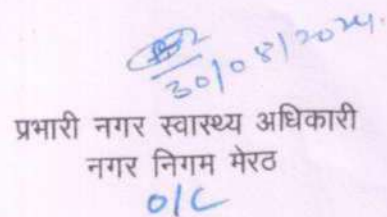 30/08/2024.
प्रभारी नगर स्वास्थ्य अधिकारी
नगर निगम मेरठ
O/C